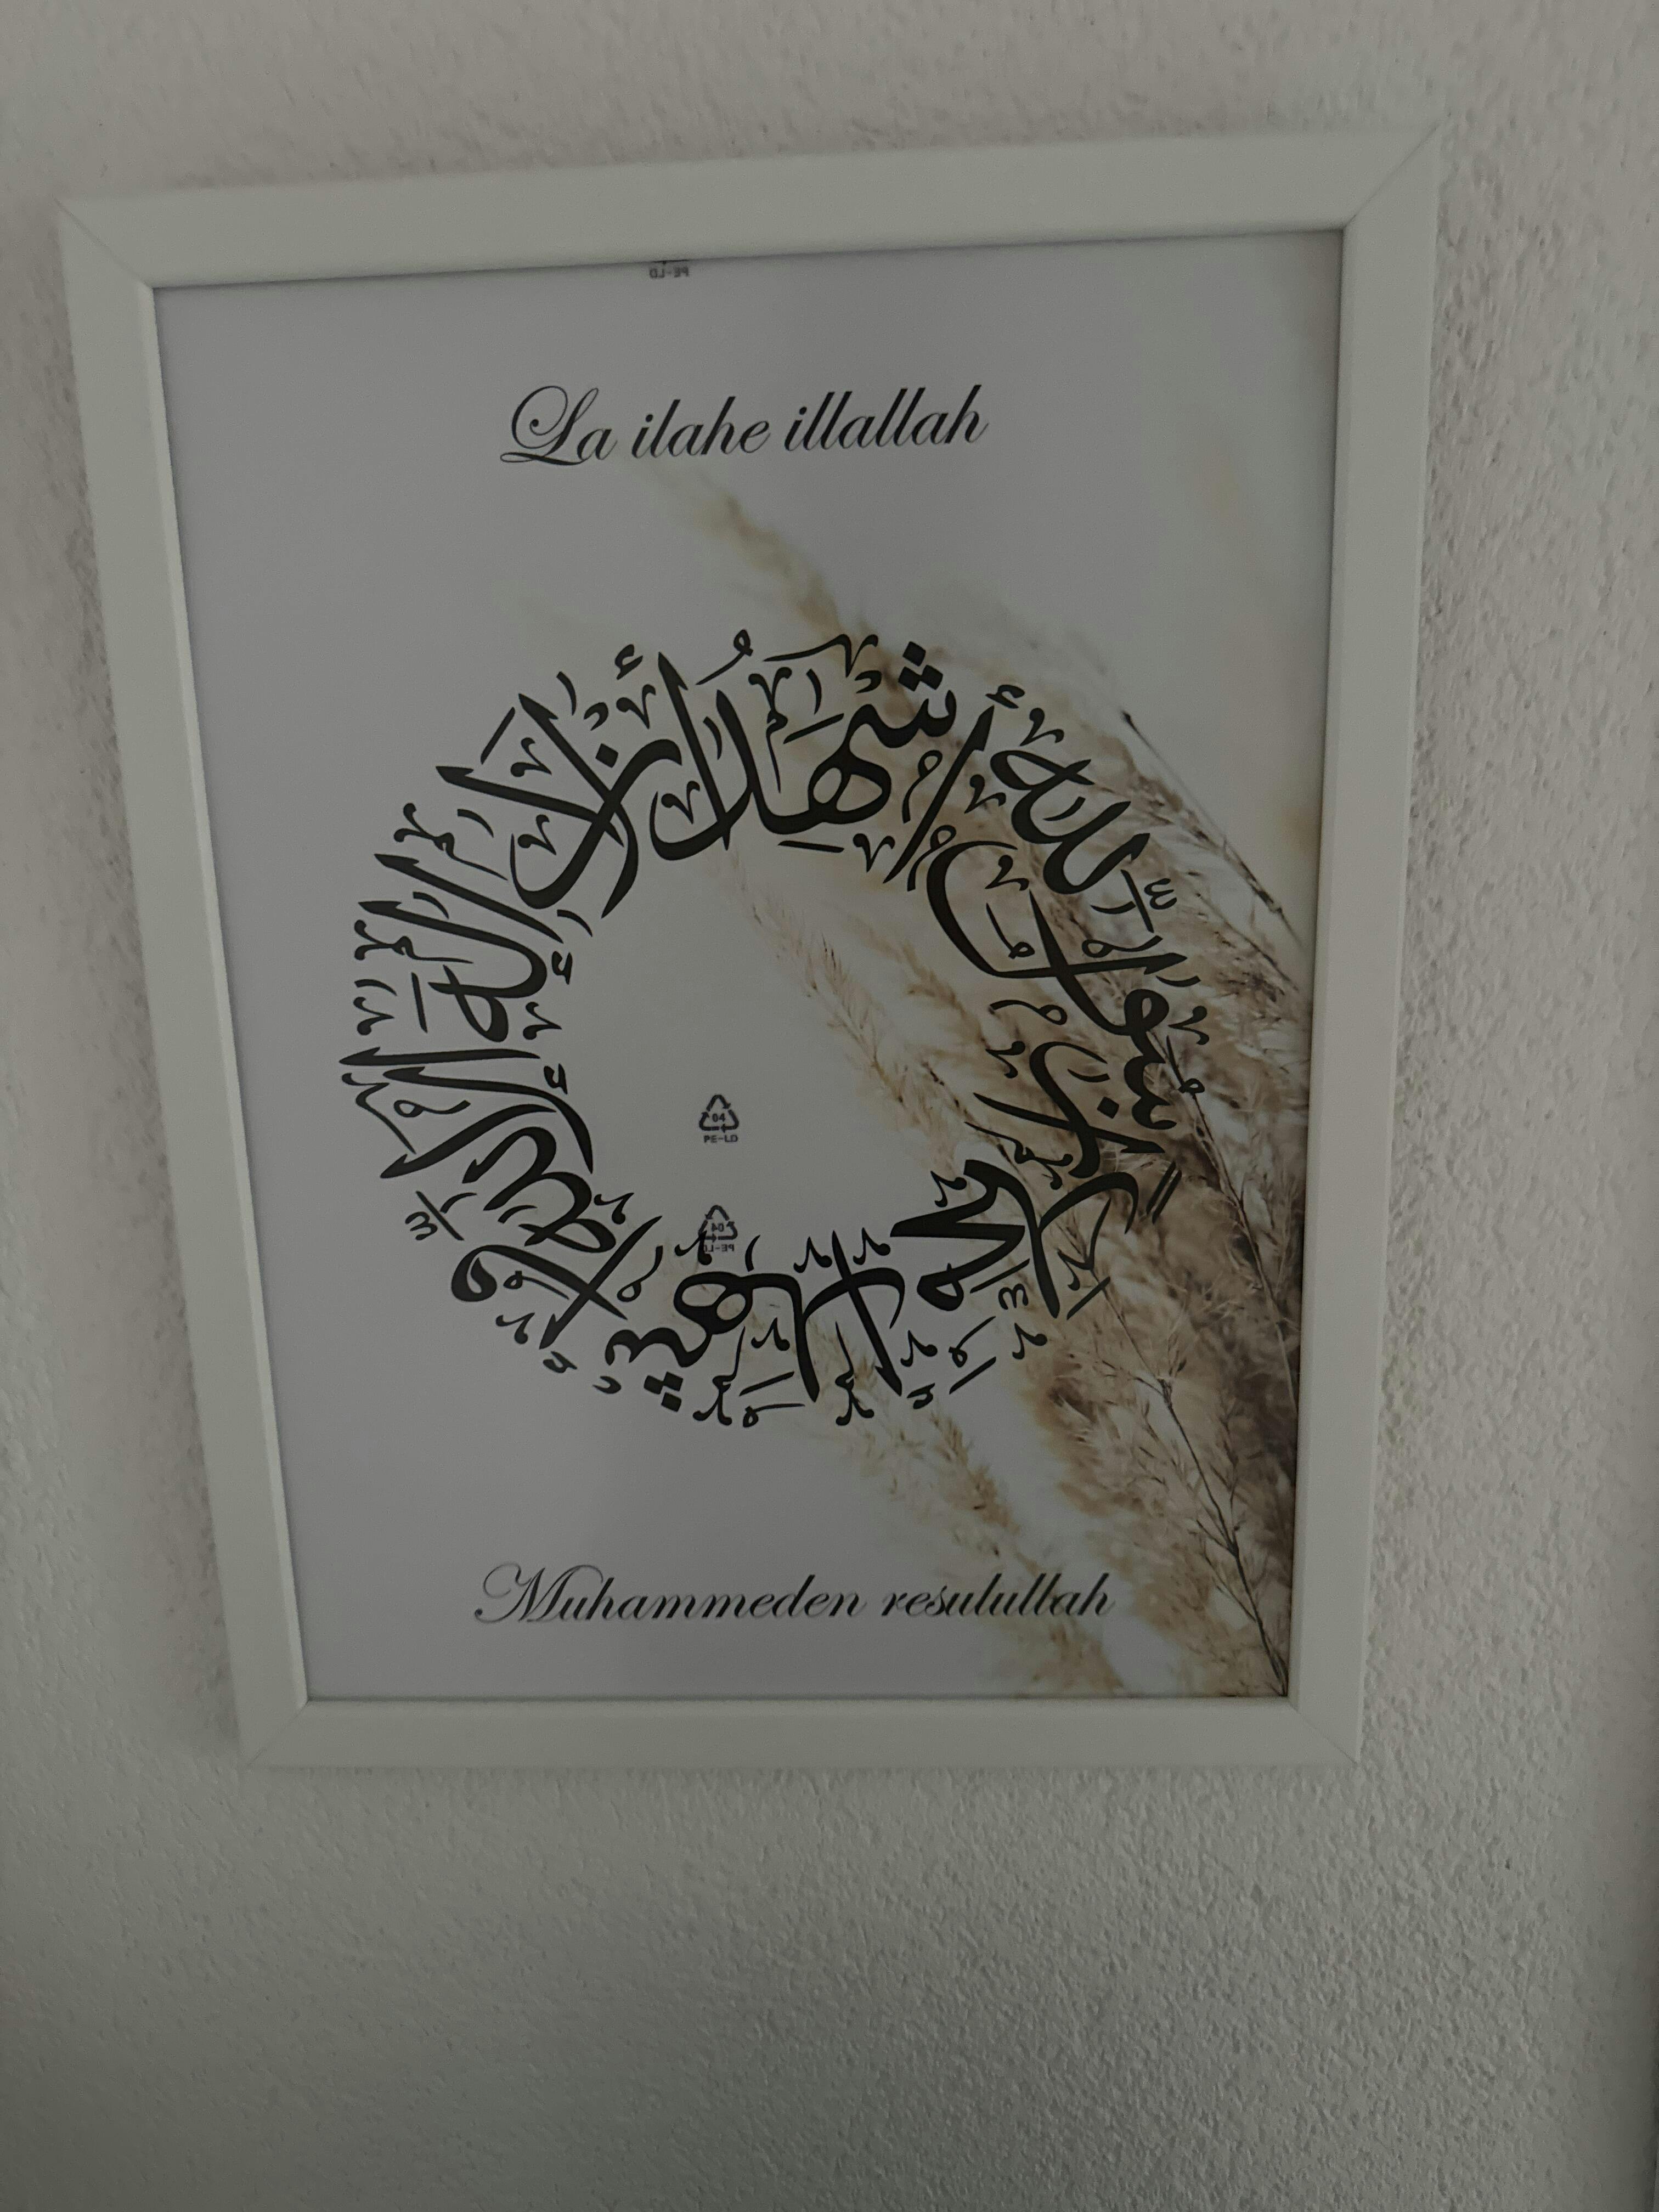 PE-LD
La ilahe illallah
أَشْهَدُ أَنْ لَا إِلَٰهَ إِلَّا اللَّهُ وَأَشْهَدُ أَنَّ مُحَمَّدًا رَسُولُ اللَّهِ
04
PE-LD
04
PE-LD
Muhammeden resulullah